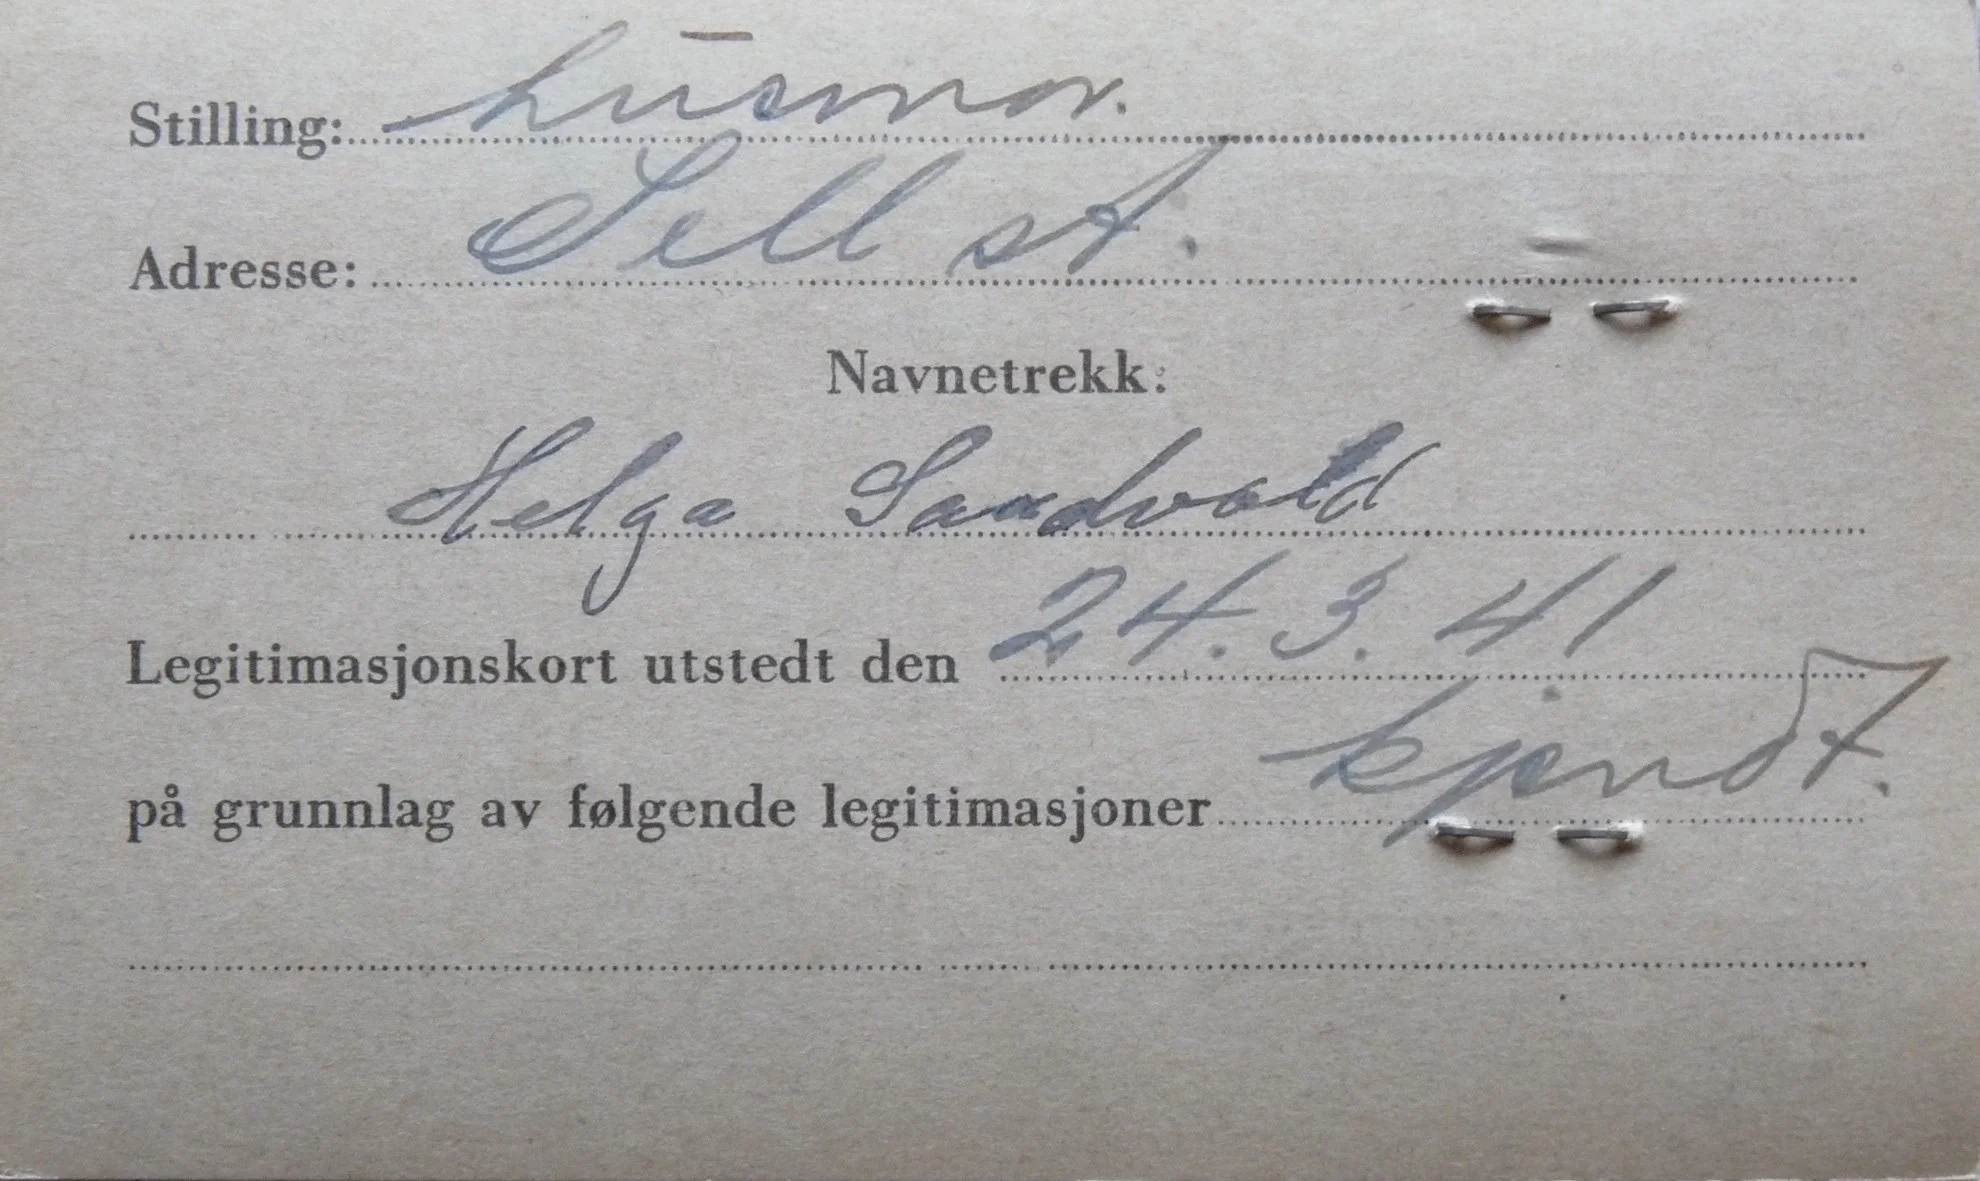 Stilling: husmor.
Adresse: Sell st.
Navnetrekk:
Helga Sandvold
Legitimasjonskort utstedt den 24.3.41
på grunnlag av følgende legitimasjoner kjendt.